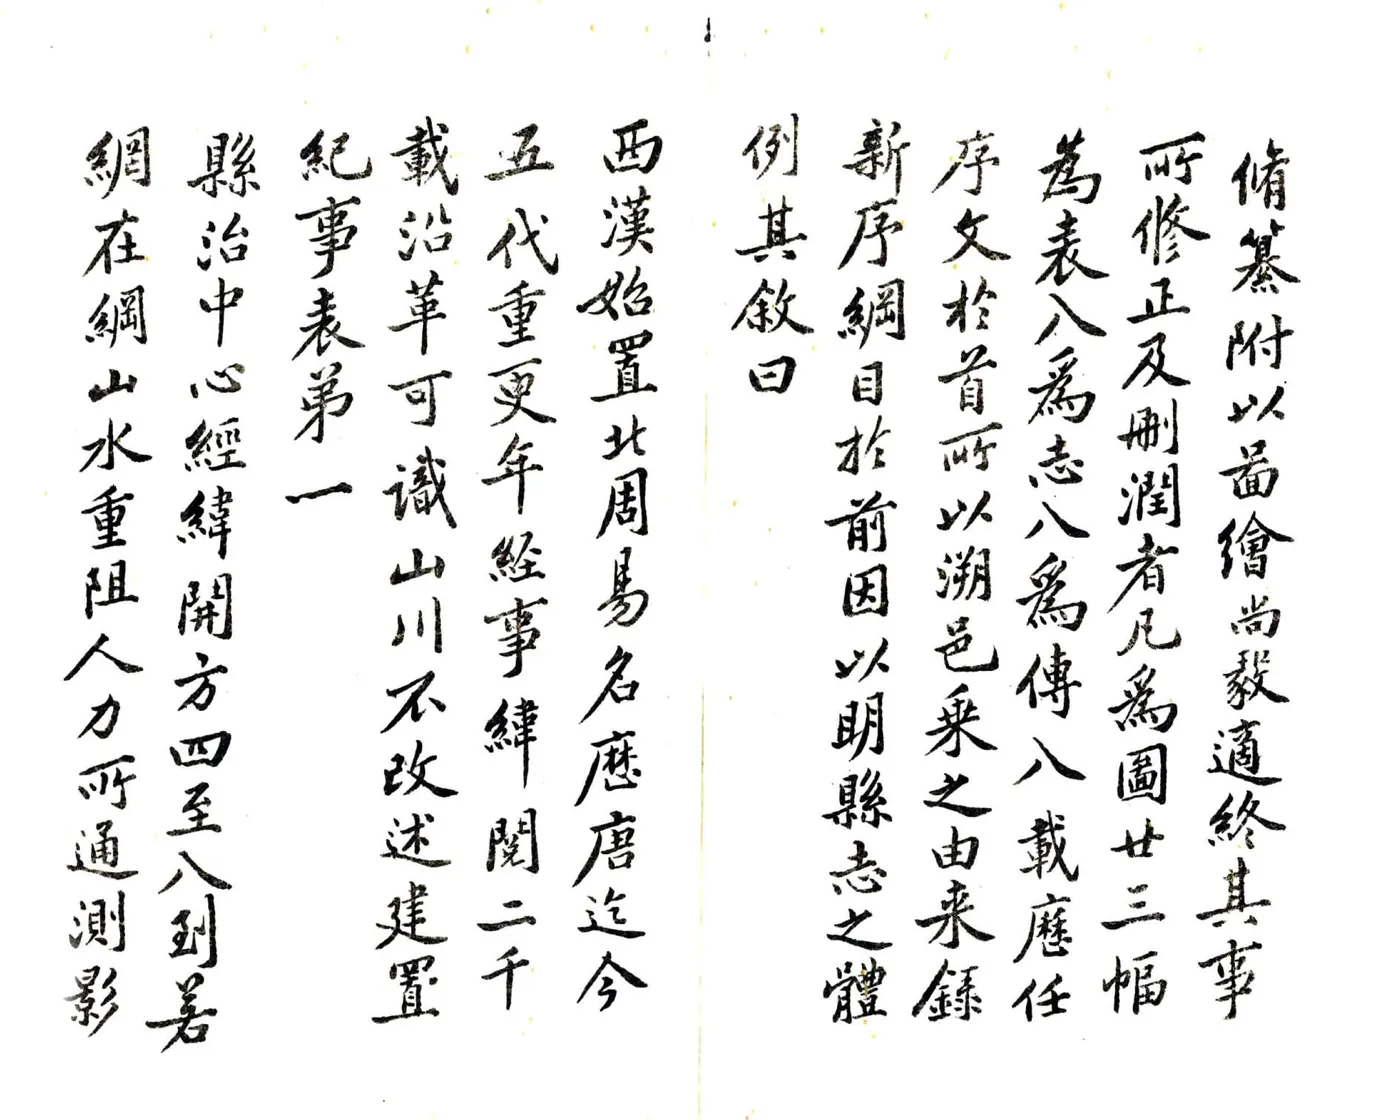 脩纂附以啚繪尚毅適終其事
所修正及刪潤者凡爲圖廿三幅
為表八爲志八爲傳八載歷任
序文於首所以溯邑乗之由来錄
新序綱目於前因以明縣志之體
例其敘曰
西漢始置北周易名歷唐迄今
五代重更年経事緯閱二千
載沿革可識山川不改述建置
紀事表第一
縣治中心經緯開方四至八到若
網在綱山水重阻人力所通測影